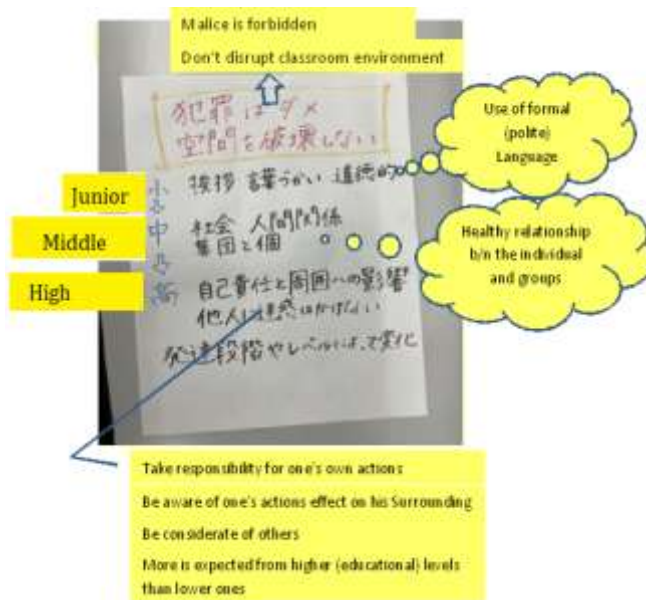 Malice is forbidden
Don't disrupt classroom environment
犯罪はダメ
空間を破壊しない
Use of formal
(polite)
Language
Junior
小 挨拶 言葉づかい 道徳的
Middle
中 社会 人間関係
集団と個
Healthy relationship
b/n the individual
and groups
High
高 自己責任と周囲への影響
他人に迷惑はかけない
発達段階やレベルによって変化
Take responsibility for one's own actions
Be aware of one's actions effect on his Surrounding
Be considerate of others
More is expected from higher (educational) levels
than lower ones